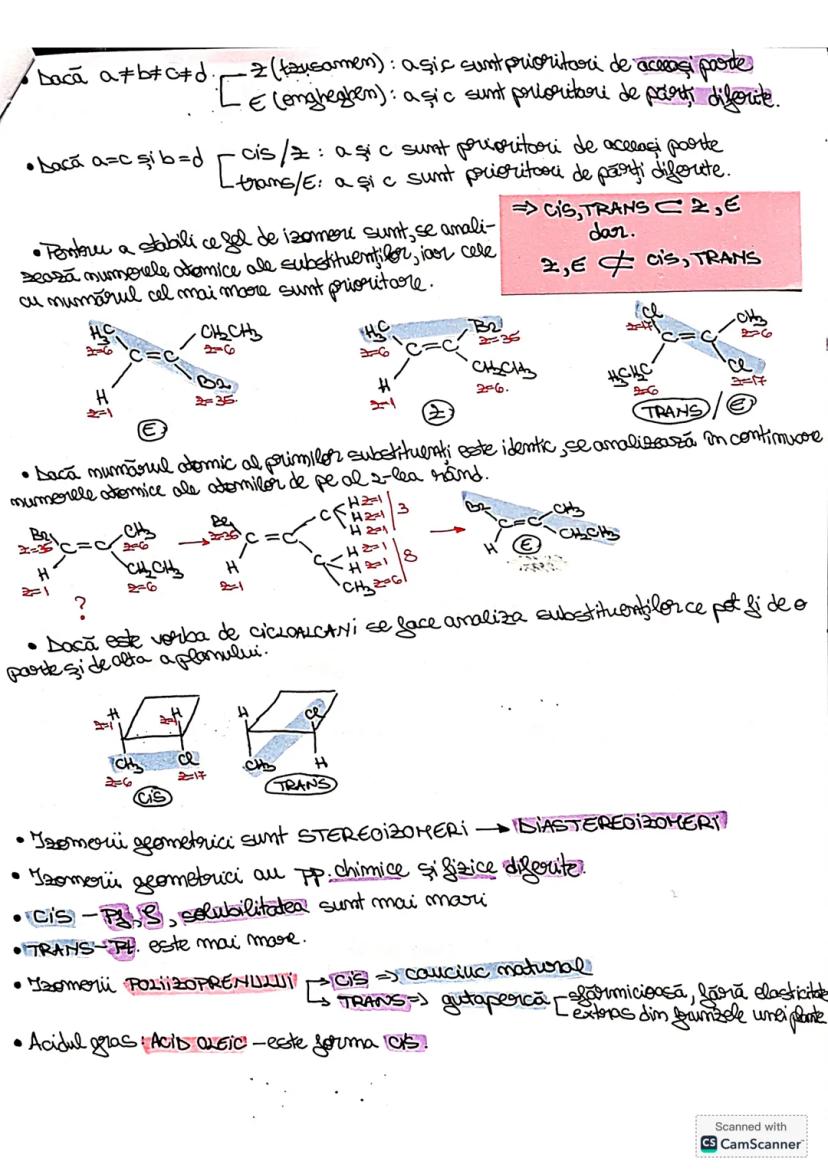 • Dacă a≠b≠c≠d. Z (tzusamen): a și c sunt prioritari de aceeași parte
E (engheghen): a și c sunt prioritari de părți diferite.
• Dacă a=c și b=d cis/Z: a și c sunt prioritari de aceeași parte
trans/E: a și c sunt prioritari de părți diferite.
⇒ CIS, TRANS ⊂ Z, E
dar.
Z, E ⊄ CIS, TRANS
• Pentru a stabili ce fel de izomeri sunt, se anali-
zează numerele atomice ale substituenților, iar cele
cu numărul cel mai mare sunt prioritare.
H₃C CH₂CH₃
Z=6 C=C Z=6
H Br
Z=1 Z=35.
E
H₃C Br
Z=6 C=C Z=35
H CH₂CH₃
Z=1 Z=6.
Z
Cl CH₃
Z=17 C=C Z=6
H₃CH₂C Cl
Z=6 Z=17
TRANS / E
• Dacă numărul atomic al primilor substituenți este identic, se analizează în continuare
numerele atomice ale atomilor de pe al 2-lea rând.
Br CH₃
Z=35 C=C Z=6
H CH₂CH₃
Z=1 Z=6
?
→
Br C H Z=1 H Z=1 H Z=1 3
Z=35 C=C
H C H Z=1 H Z=1 CH₃ Z=6 8
Z=1
→
Br CH₃
C=C
H CH₂CH₃
E
• Dacă este vorba de CICLOALCANI se face analiza substituenților ce pot fi de o
parte și de alta a planului.
H H
Z=1 Z=1
CH₃ Cl
Z=6 Z=17
CIS
H Cl
CH₃ H
TRANS
• Izomerii geometrici sunt STEREOIZOMERI → DIASTEREOIZOMERI
• Izomerii geometrici au pp. chimice și fizice diferite.
• CIS – Pf, ρ, solubilitatea sunt mai mari
• TRANS – Pt. este mai mare.
• Izomerii POLIIZOPRENULUI CIS ⇒ cauciuc natural
TRANS ⇒ gutapercă sfărmicioasă, fără elasticitate
extras din frunzele unei plante
• Acidul gras: ACID OLEIC – este forma CIS.
Scanned with
CS CamScanner